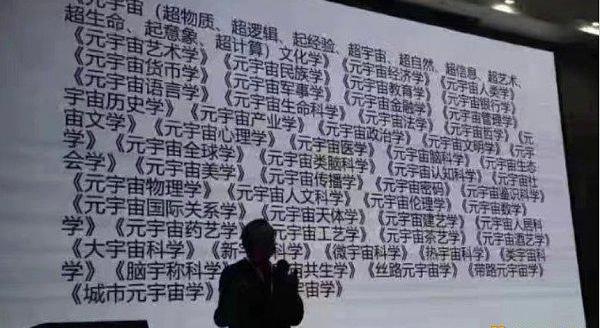 《元宇宙（超物质、超逻辑、起经验、超宇宙、超自然、超信息、超艺术、
超生命、起意象、超计算）文化学》《元宇宙经济学》《元宇宙人类学》
《元宇宙艺术学》《元宇宙民族学》《元宇宙教育学》《元宇宙银行学》
《元宇宙货币学》《元宇宙军事学》《元宇宙金融学》《元宇宙管理学》
《元宇宙语言学》《元宇宙生命科学》《元宇宙法学》《元宇宙哲学》《元
宇宙历史学》《元宇宙产业学》《元宇宙政治学》《元宇宙文明学》《元宇
宙文学》《元宇宙心理学》《元宇宙医学》《元宇宙脑科学》《元宇宙生态
学》《元宇宙全球学》《元宇宙类脑科学》《元宇宙认知科学》《元宇宙社
会学》《元宇宙美学》《元宇宙传播学》《元宇宙密码》《元宇宙鉴识科学》
《元宇宙物理学》《元宇宙人文科学》《元宇宙伦理学》《元宇宙数学》
《元宇宙国际关系学》《元宇宙天体学》《元宇宙建艺学》《元宇宙人居科
学》《元宇宙药艺学》《元宇宙工艺学》《元宇宙茶艺学》《元宇宙酒艺学》
《大宇宙科学》《新宇 科学》《微宇宙科学》《热宇宙科学》《类宇宙科
学》《脑宇称科学》 宙共生学》《丝路元宇宙学》《带路元宇宙学》
《城市元宇宙学》 宇宙学》